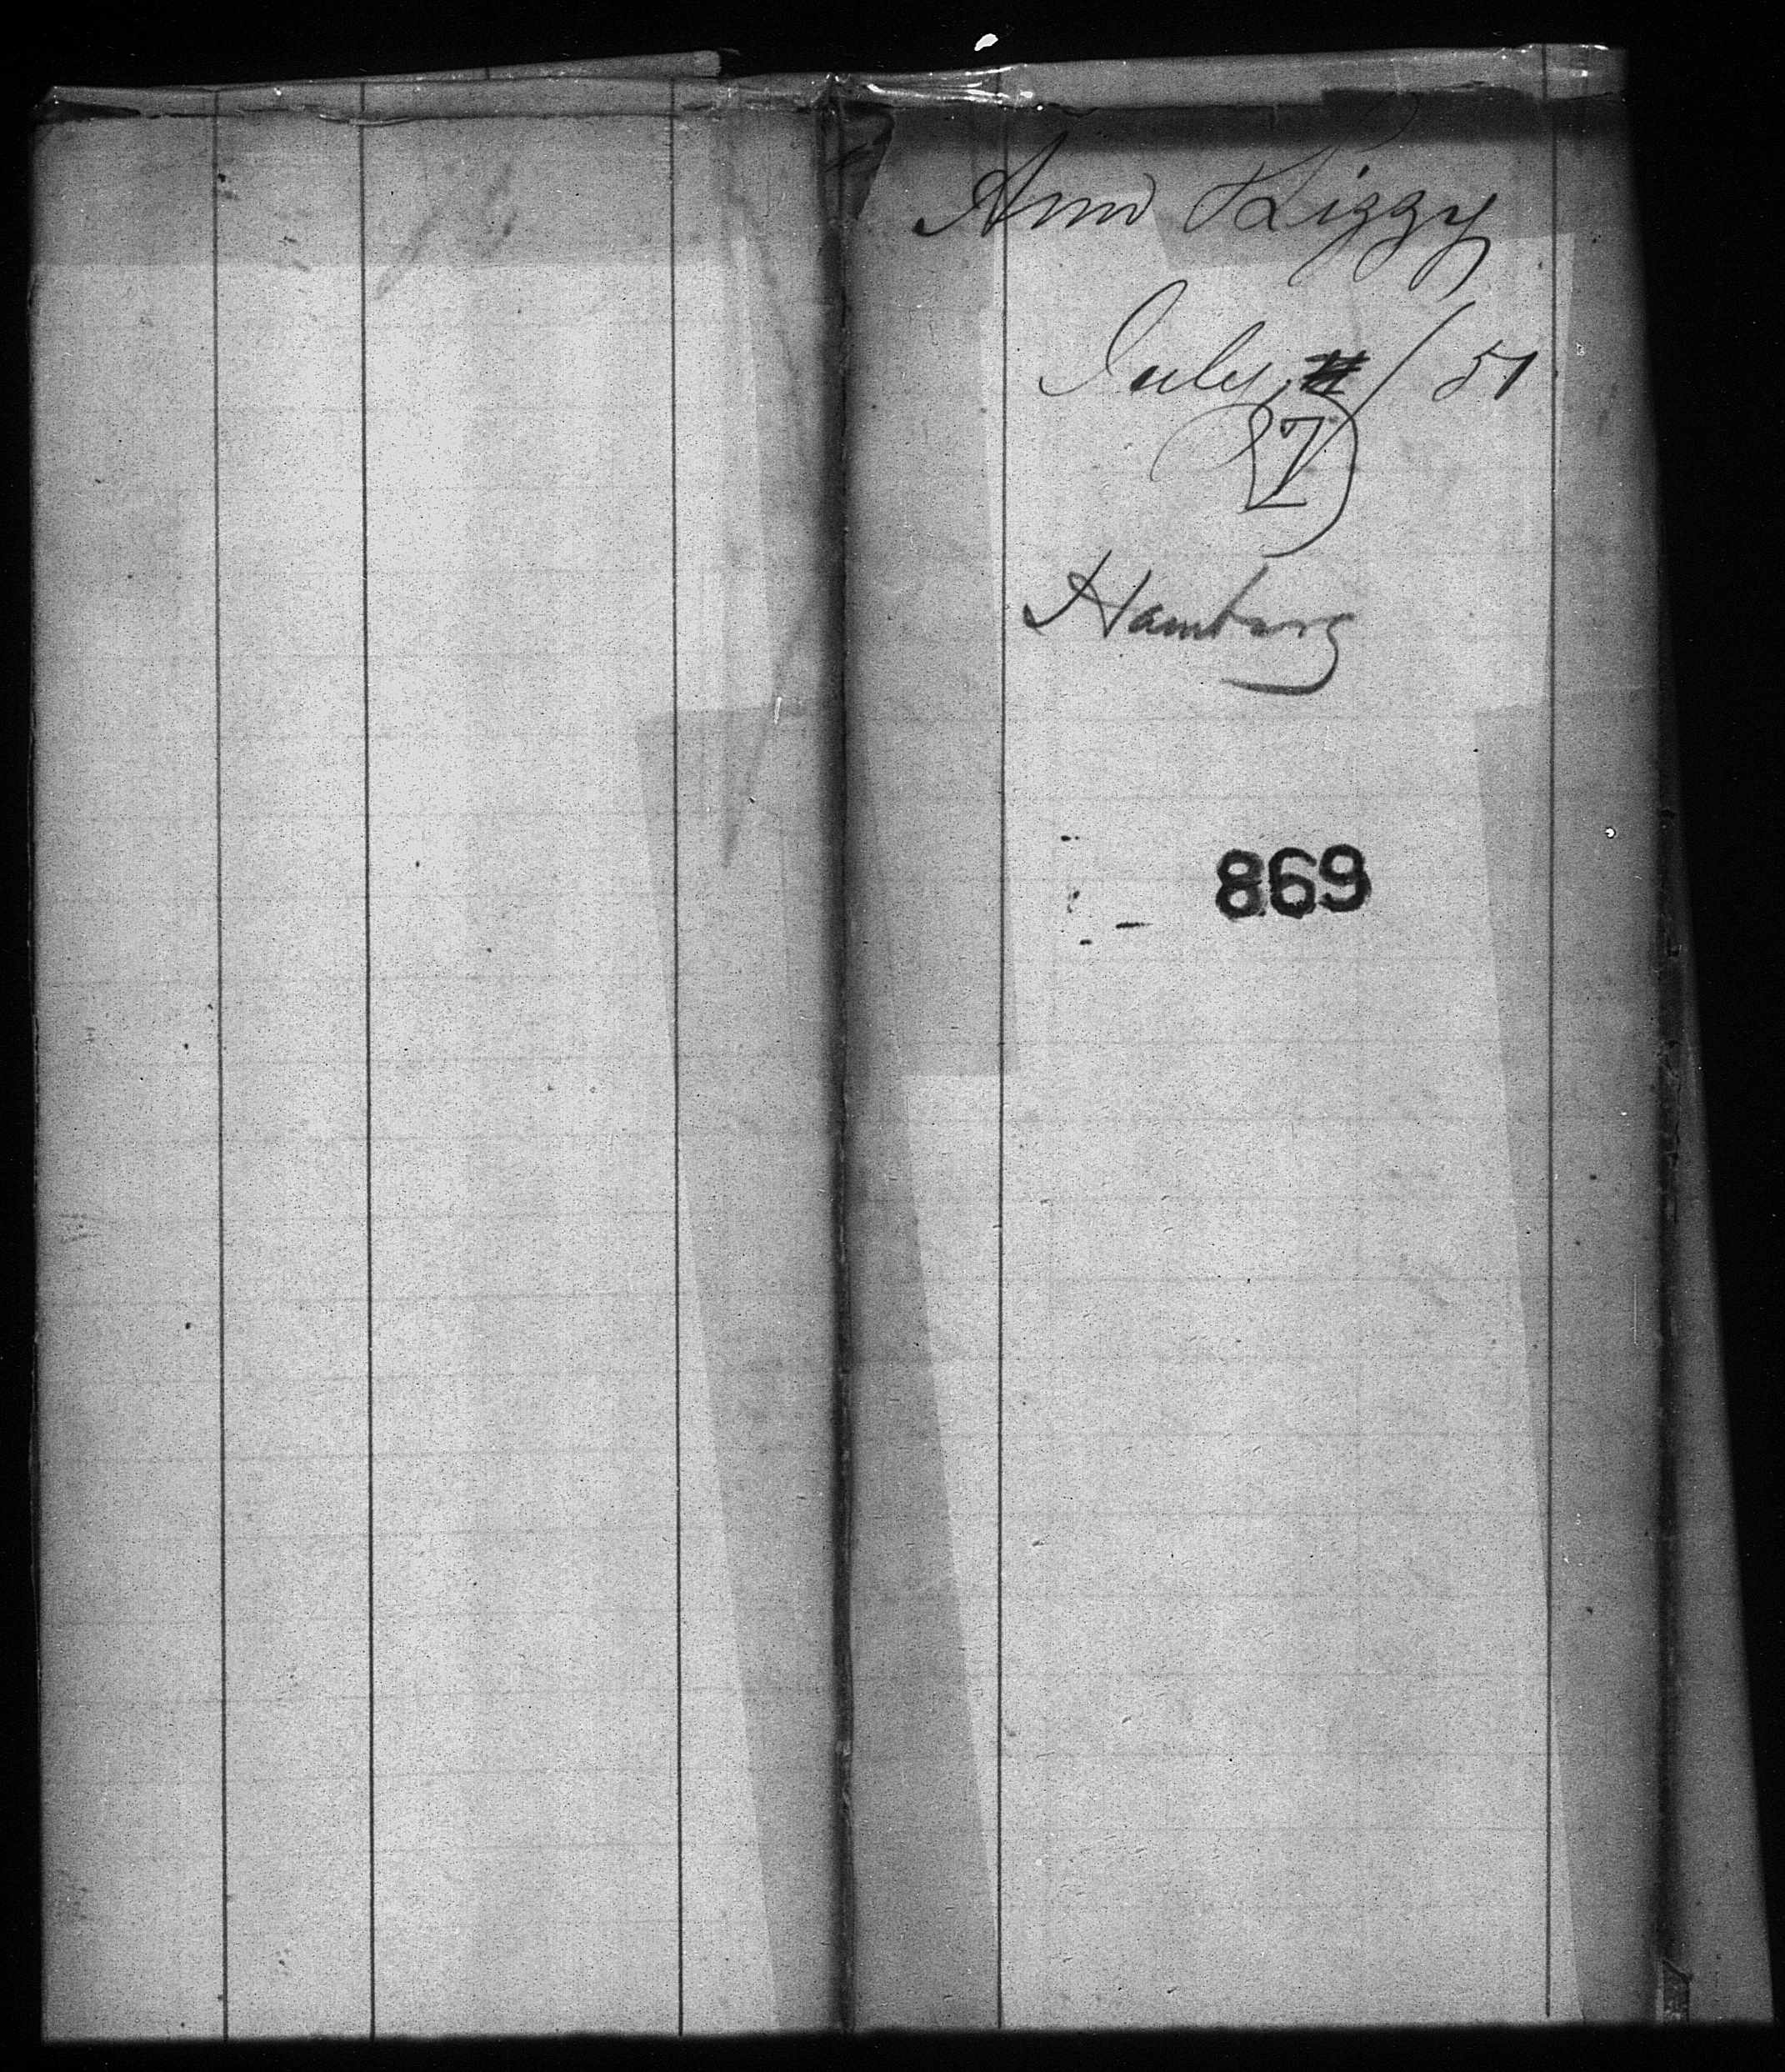 Ann Lizzy
July / 51
7
Hamburg
869